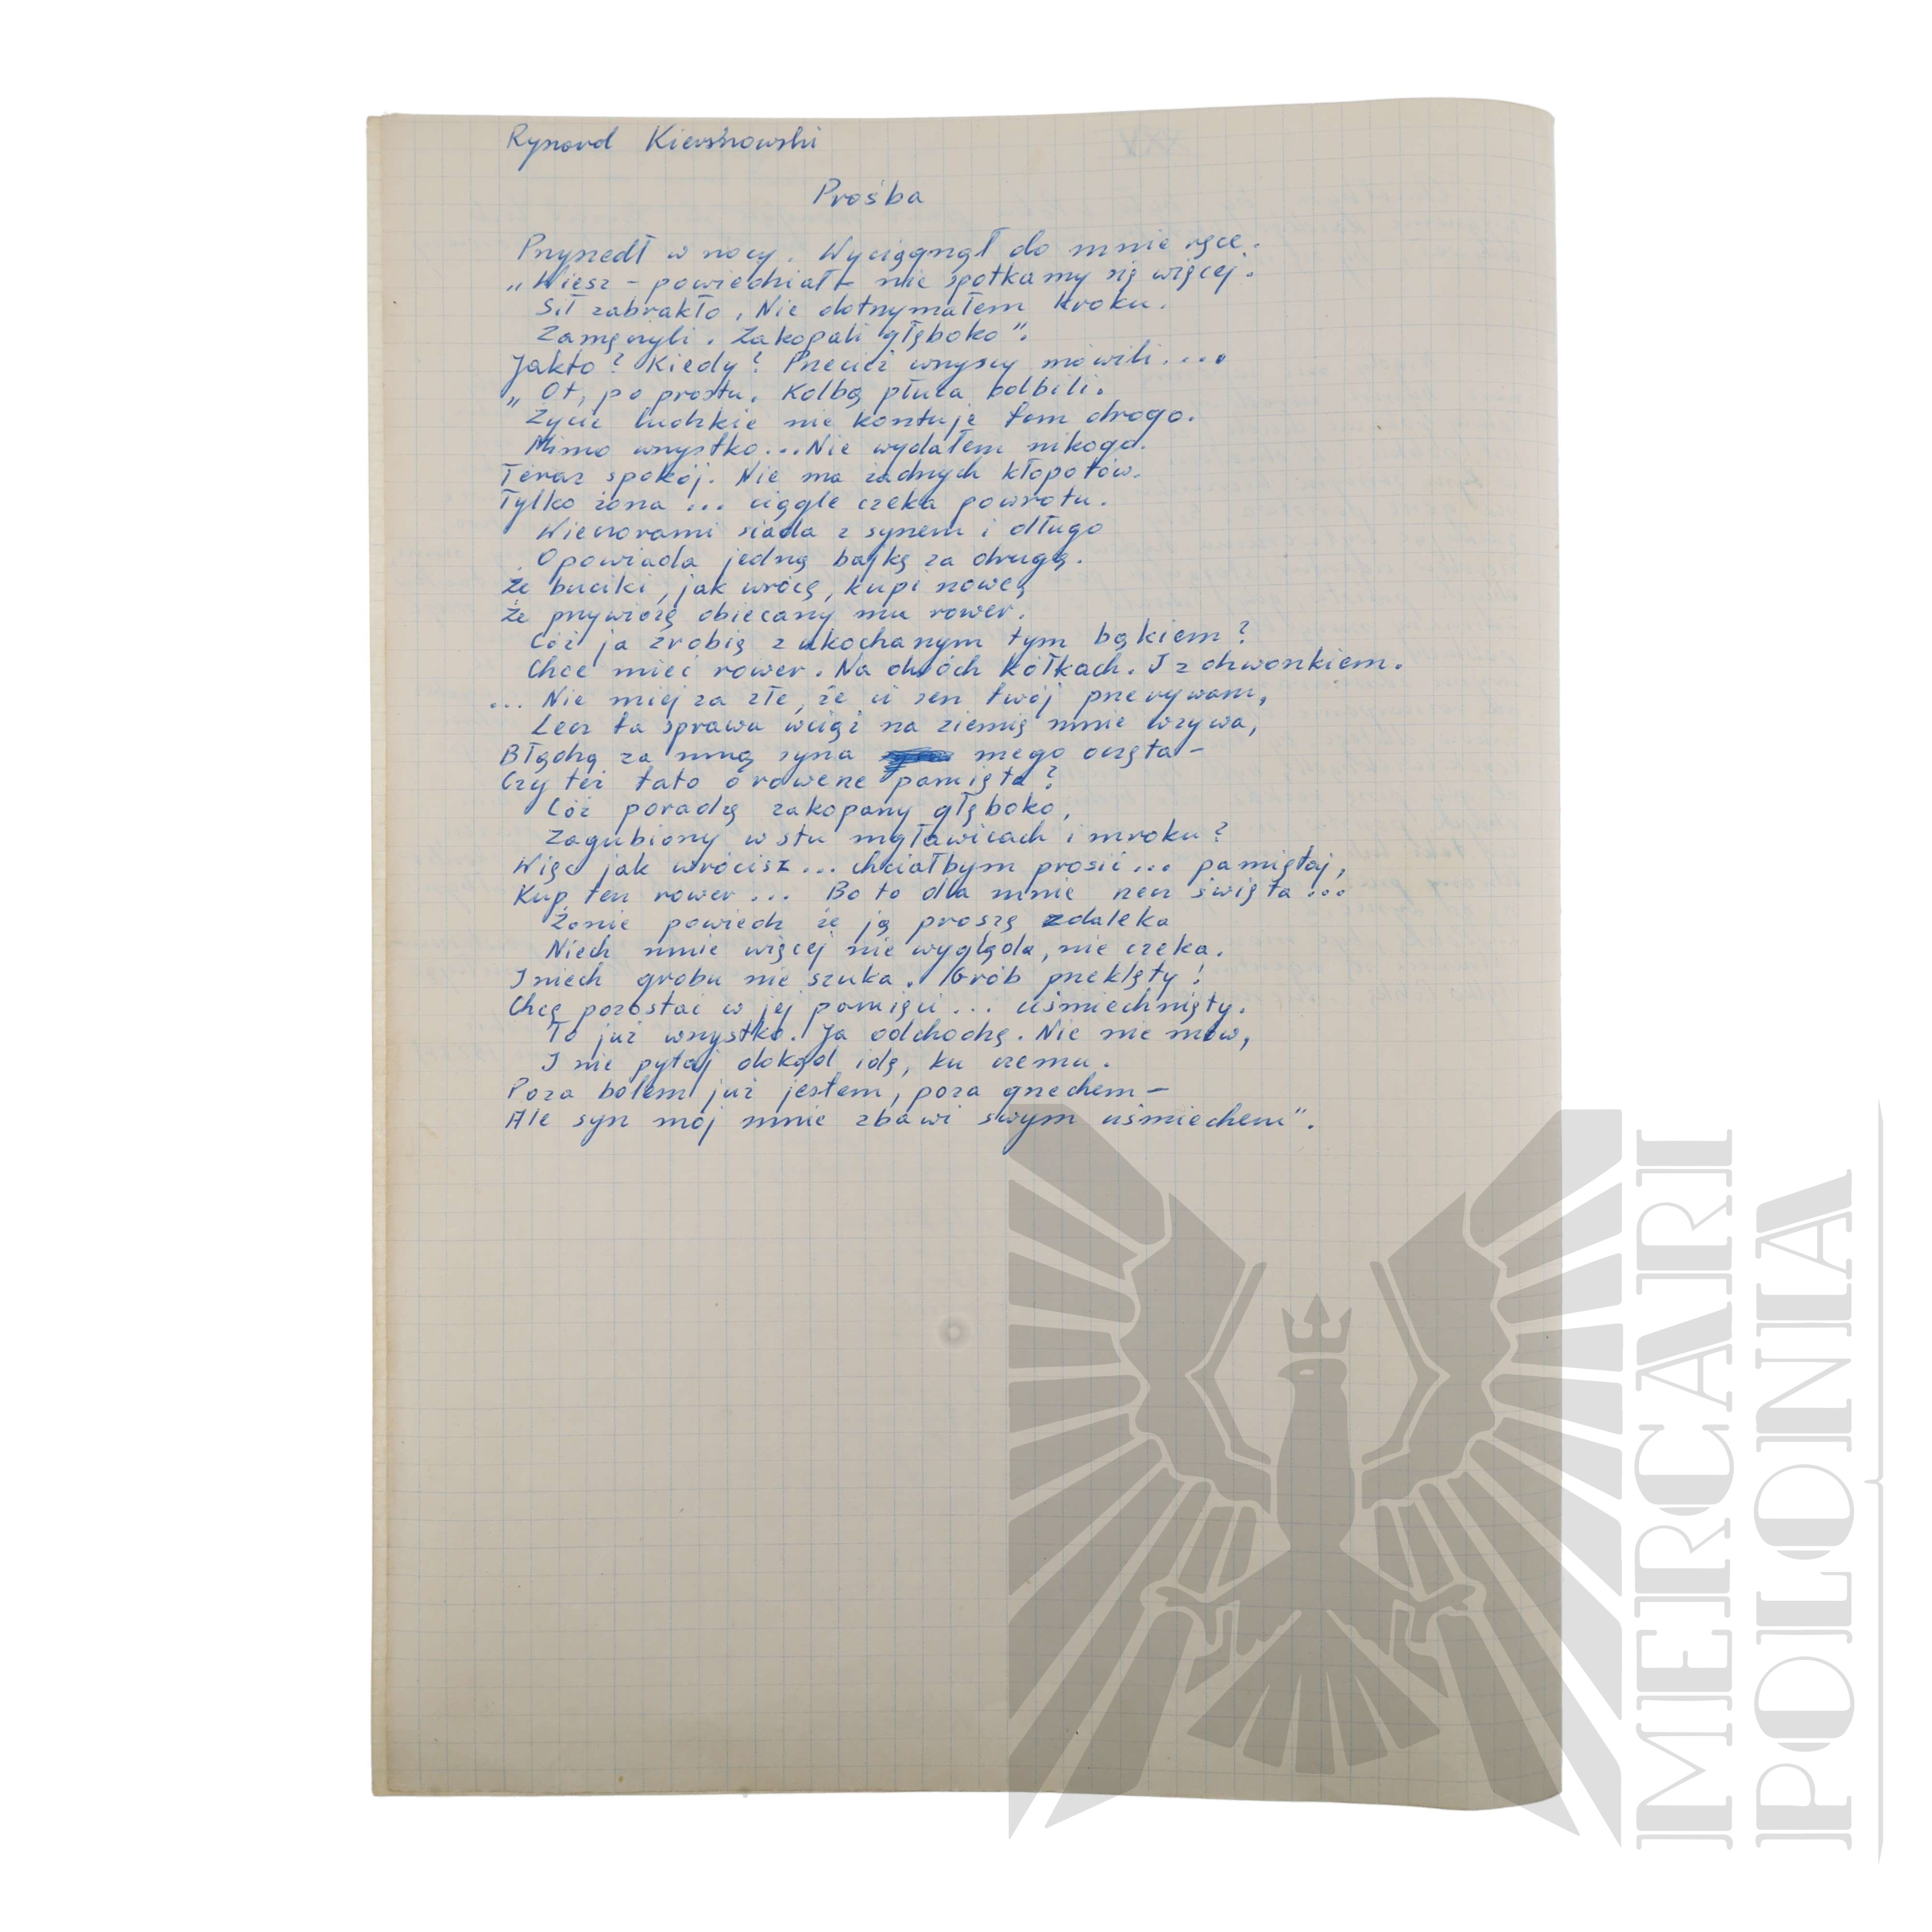 Ryszard Kiersnowski
Prośba
Przyszedł w nocy. Wyciągnął do mnie ręce.
„Wiesz – powiedział – nie spotkamy się więcej.
Sił zabrakło, Nie dotrzymałem kroku.
Zamęczyli. Zakopali głęboko".
Jakto? Kiedy? Przecież wszyscy mówili....
„Ot, po prostu. Kolbą płuca odbili.
Życie ludzkie nie kosztuje tam drogo.
Mimo wszystko... Nie wydałem nikogo.
Teraz spokój. Nie ma żadnych kłopotów.
Tylko żona ... ciągle czeka powrotu.
Wieczorami siada z synem i długo
Opowiada jedną bajkę za drugą.
Że buciki, jak wrócę, kupi nowe,
Że przywiozę obiecany mu rower.
Cóż ja zrobię z ukochanym tym bąkiem?
Chce mieć rower. Na dwóch kółkach. I z dzwonkiem.
... Nie miej za złe, że ci sen twój przerywam,
Lecz ta sprawa wciąż na ziemię mnie wzywa,
Błądzą za mną syna mego oczęta –
Czy też tato o rowerze pamięta?
Cóż poradzę zakopany głęboko,
Zagubiony w stu mgławicach i mroku?
Więc jak wrócisz... chciałbym prosić... pamiętaj,
Kup ten rower... Bo to dla mnie rzecz święta...
Żonie powiedz że ją proszę zdaleka
Niech mnie więcej nie wygląda, nie czeka.
I niech grobu nie szuka. Grób przeklęty!
Chcę pozostać w jej pamięci... uśmiechnięty.
To już wszystko. Ja odchodzę. Nic nie mów,
I nie pytaj dokąd idę, ku czemu.
Poza bólem już jestem, poza grzechem –
Ale syn mój mnie zbawi swym uśmiechem".
MERCARI
POLONIA